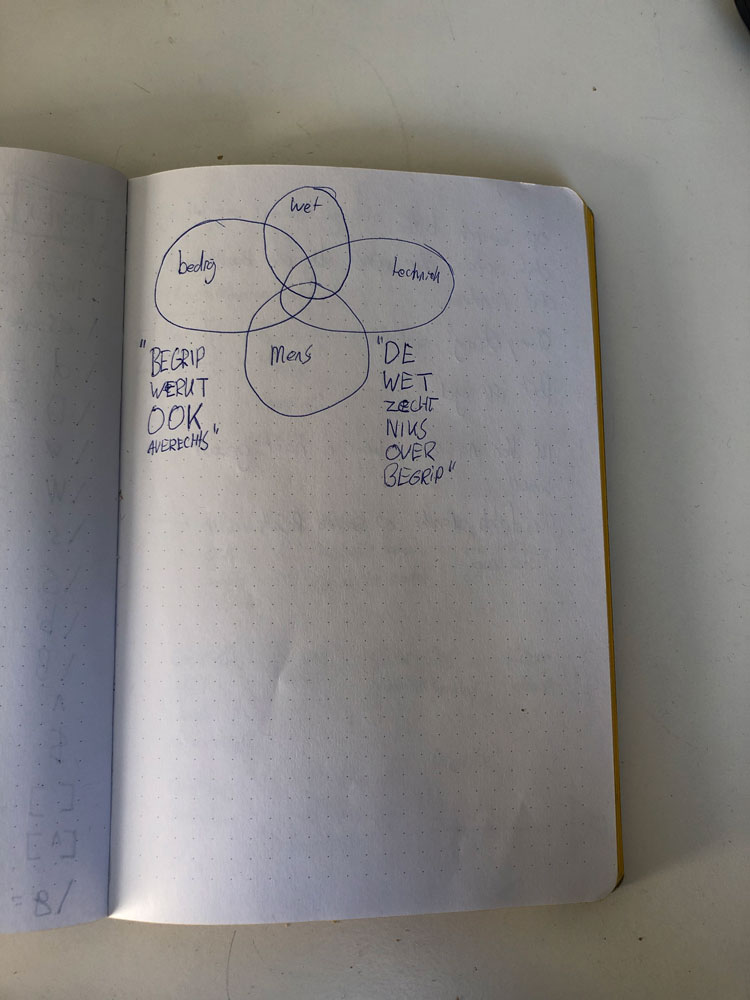 wet
bedrijf
techniek
mens
"BEGRIP
WERKT
OOK
AVERECHTS"
"DE
WET
ZECHT
NIKS
OVER
BEGRIP"
[A]
/8 =